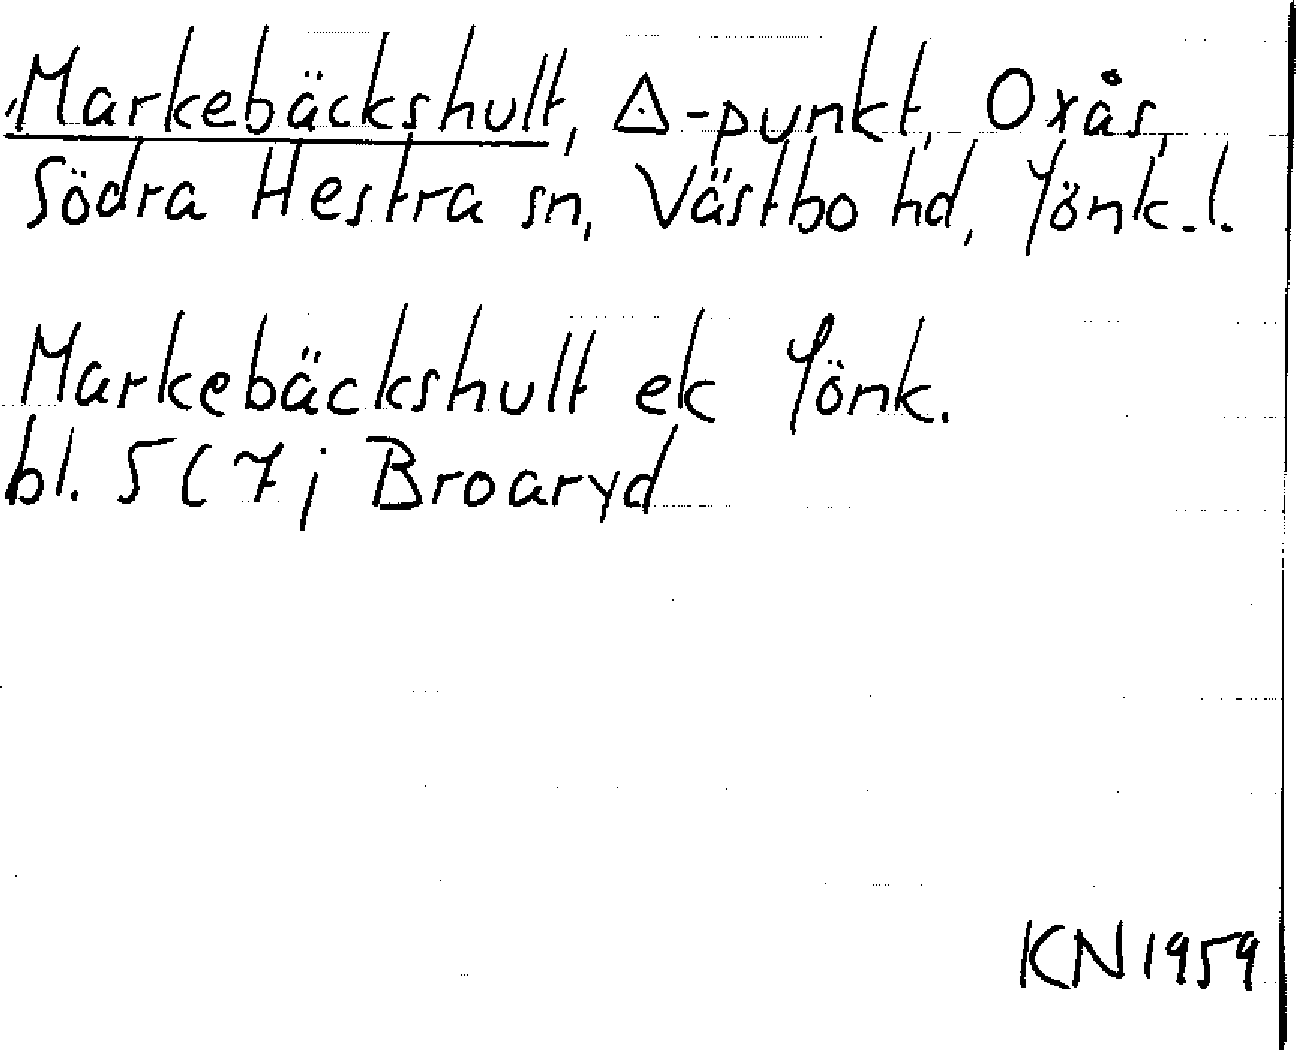 Markebäckshult, △-punkt, Oxås,
Södra Hestra sn, Västbo hd, Jönk.l.
Markebäckshult ek Jönk.
bl. 5C7j Broaryd
KN 1959